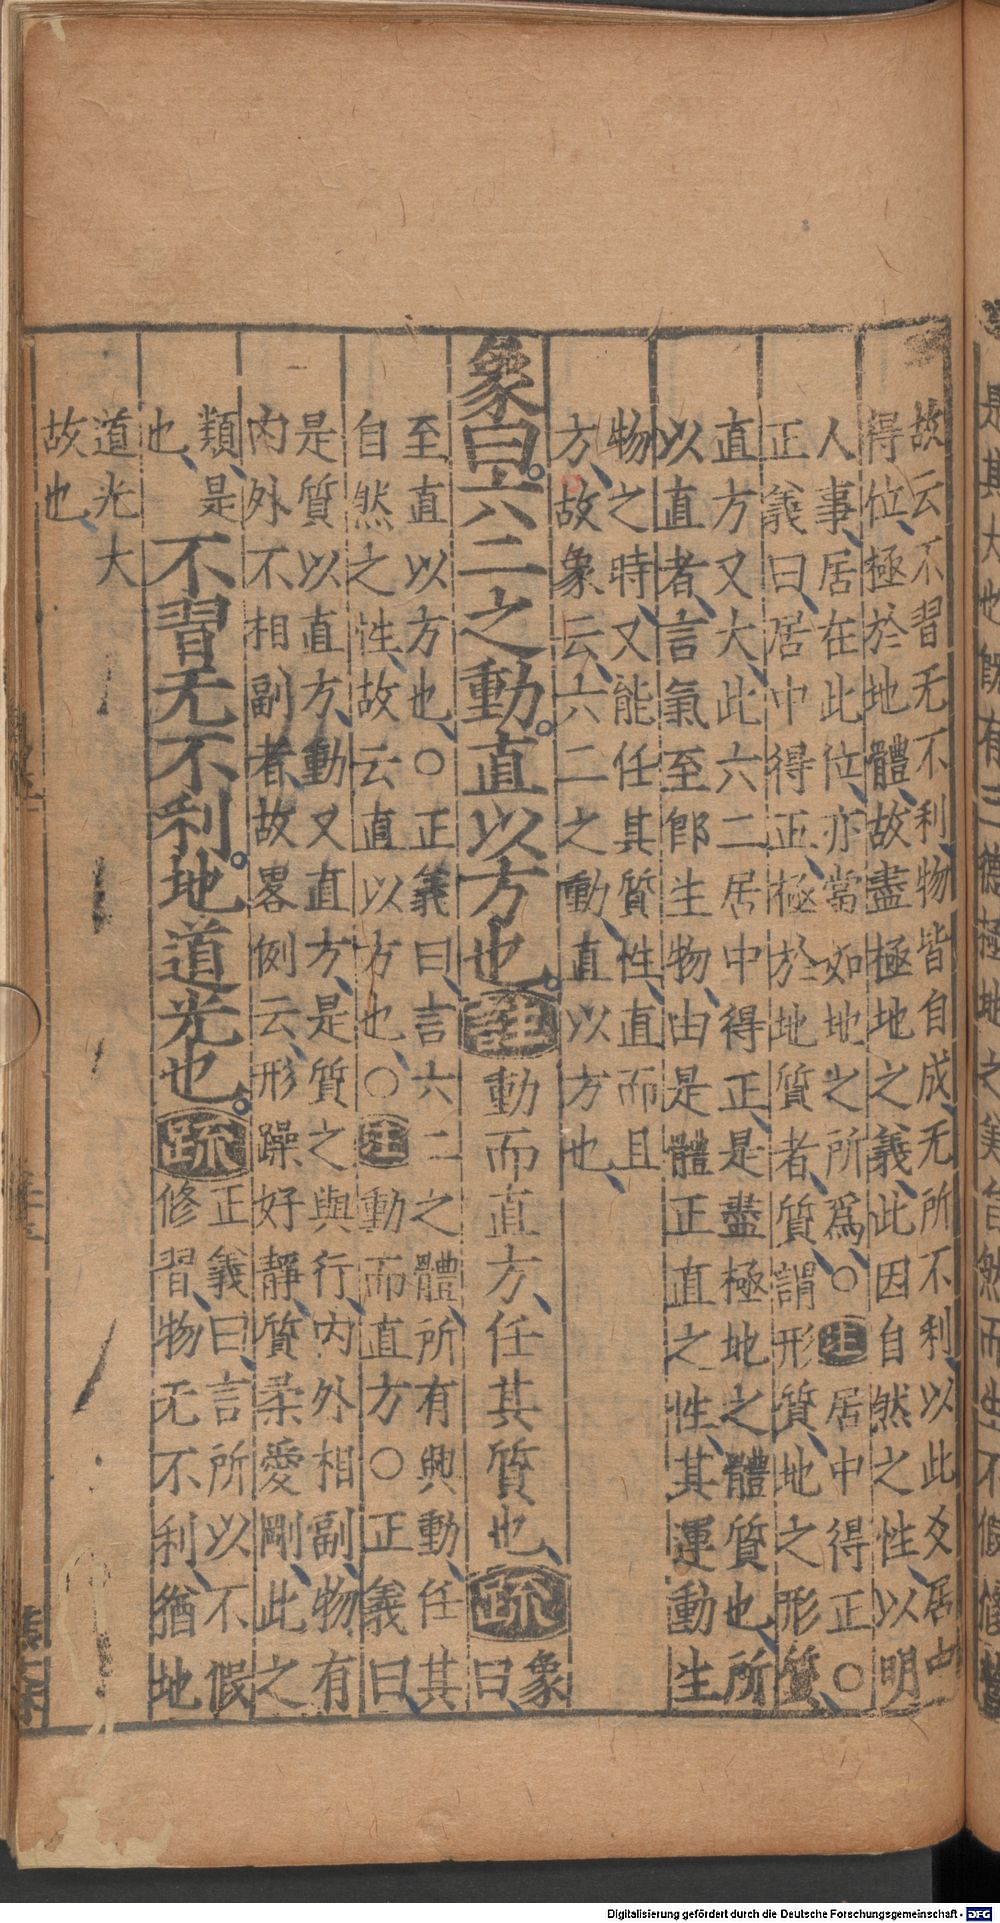 故云不習无不利物皆自成无所不利以此爻居中
得位極於地體故盡極地之義此因自然之性以明
人事居在此位亦當如地之所爲○注居中得正○
正義曰居中得正極於地質者質謂形質地之形質
直方又大此六二居中得正是盡極地之體質也所
以直者言氣至卽生物由是體正直之性其運動生
物之時又能任其質性直而且
方故象云六二之動直以方也
象曰六二之動直以方也註動而直方任其質也疏象曰
至直以方也○正義曰言六二之體所有興動任其
自然之性故云直以方也○注動而直方○正義曰
是質以直方動又直方是質之與行內外相副物有
內外不相副者故畧例云形躁好靜質柔愛剛此之
類是
也
不習无不利地道光也疏正義曰言所以不假
修習物无不利猶地
道光大
故也
Digitalisierung gefördert durch die Deutsche Forschungsgemeinschaft - DFG